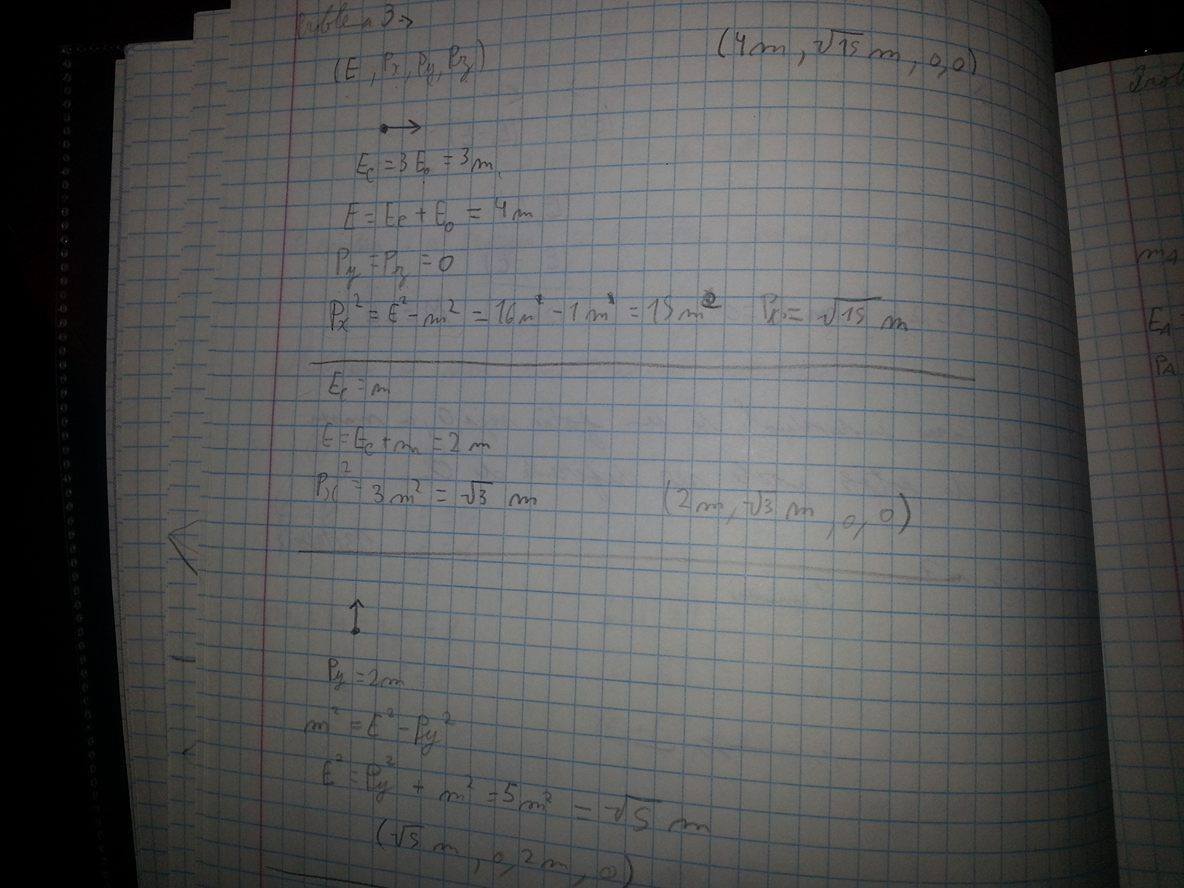 Problema 3→
(E, Px, Py, Pz)
(4m, √15 m, 0, 0)
Ec = 3E₀ = 3m
E = Ec + E₀ = 4m
Py = Pz = 0
Px² = E² - m² = 16m² - 1m² = 15m² Px = √15 m
Ec = m
E = Ec + m = 2m
Px² = 3m² = √3 m
(2m, √3 m, 0, 0)
Py = 2m
m² = E² - Py²
E² = Py² + m² = 5m² = √5 m
(√5 m, 0, 2m, 0)
Prob
mA
EA
PA